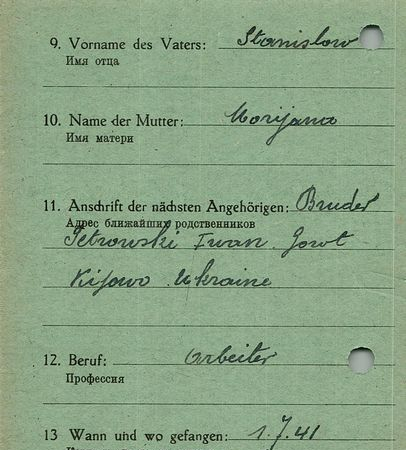 9. Vorname des Vaters: Stanislow
Имя отца
10. Name der Mutter: Morijana
Имя матери
11. Anschrift der nächsten Angehörigen: Bruder
Адрес ближайших родственников
Petrowski Iwan Gowt
Kijowo Ukraine
12. Beruf: Arbeiter
Профессия
13 Wann und wo gefangen: 1.7.41